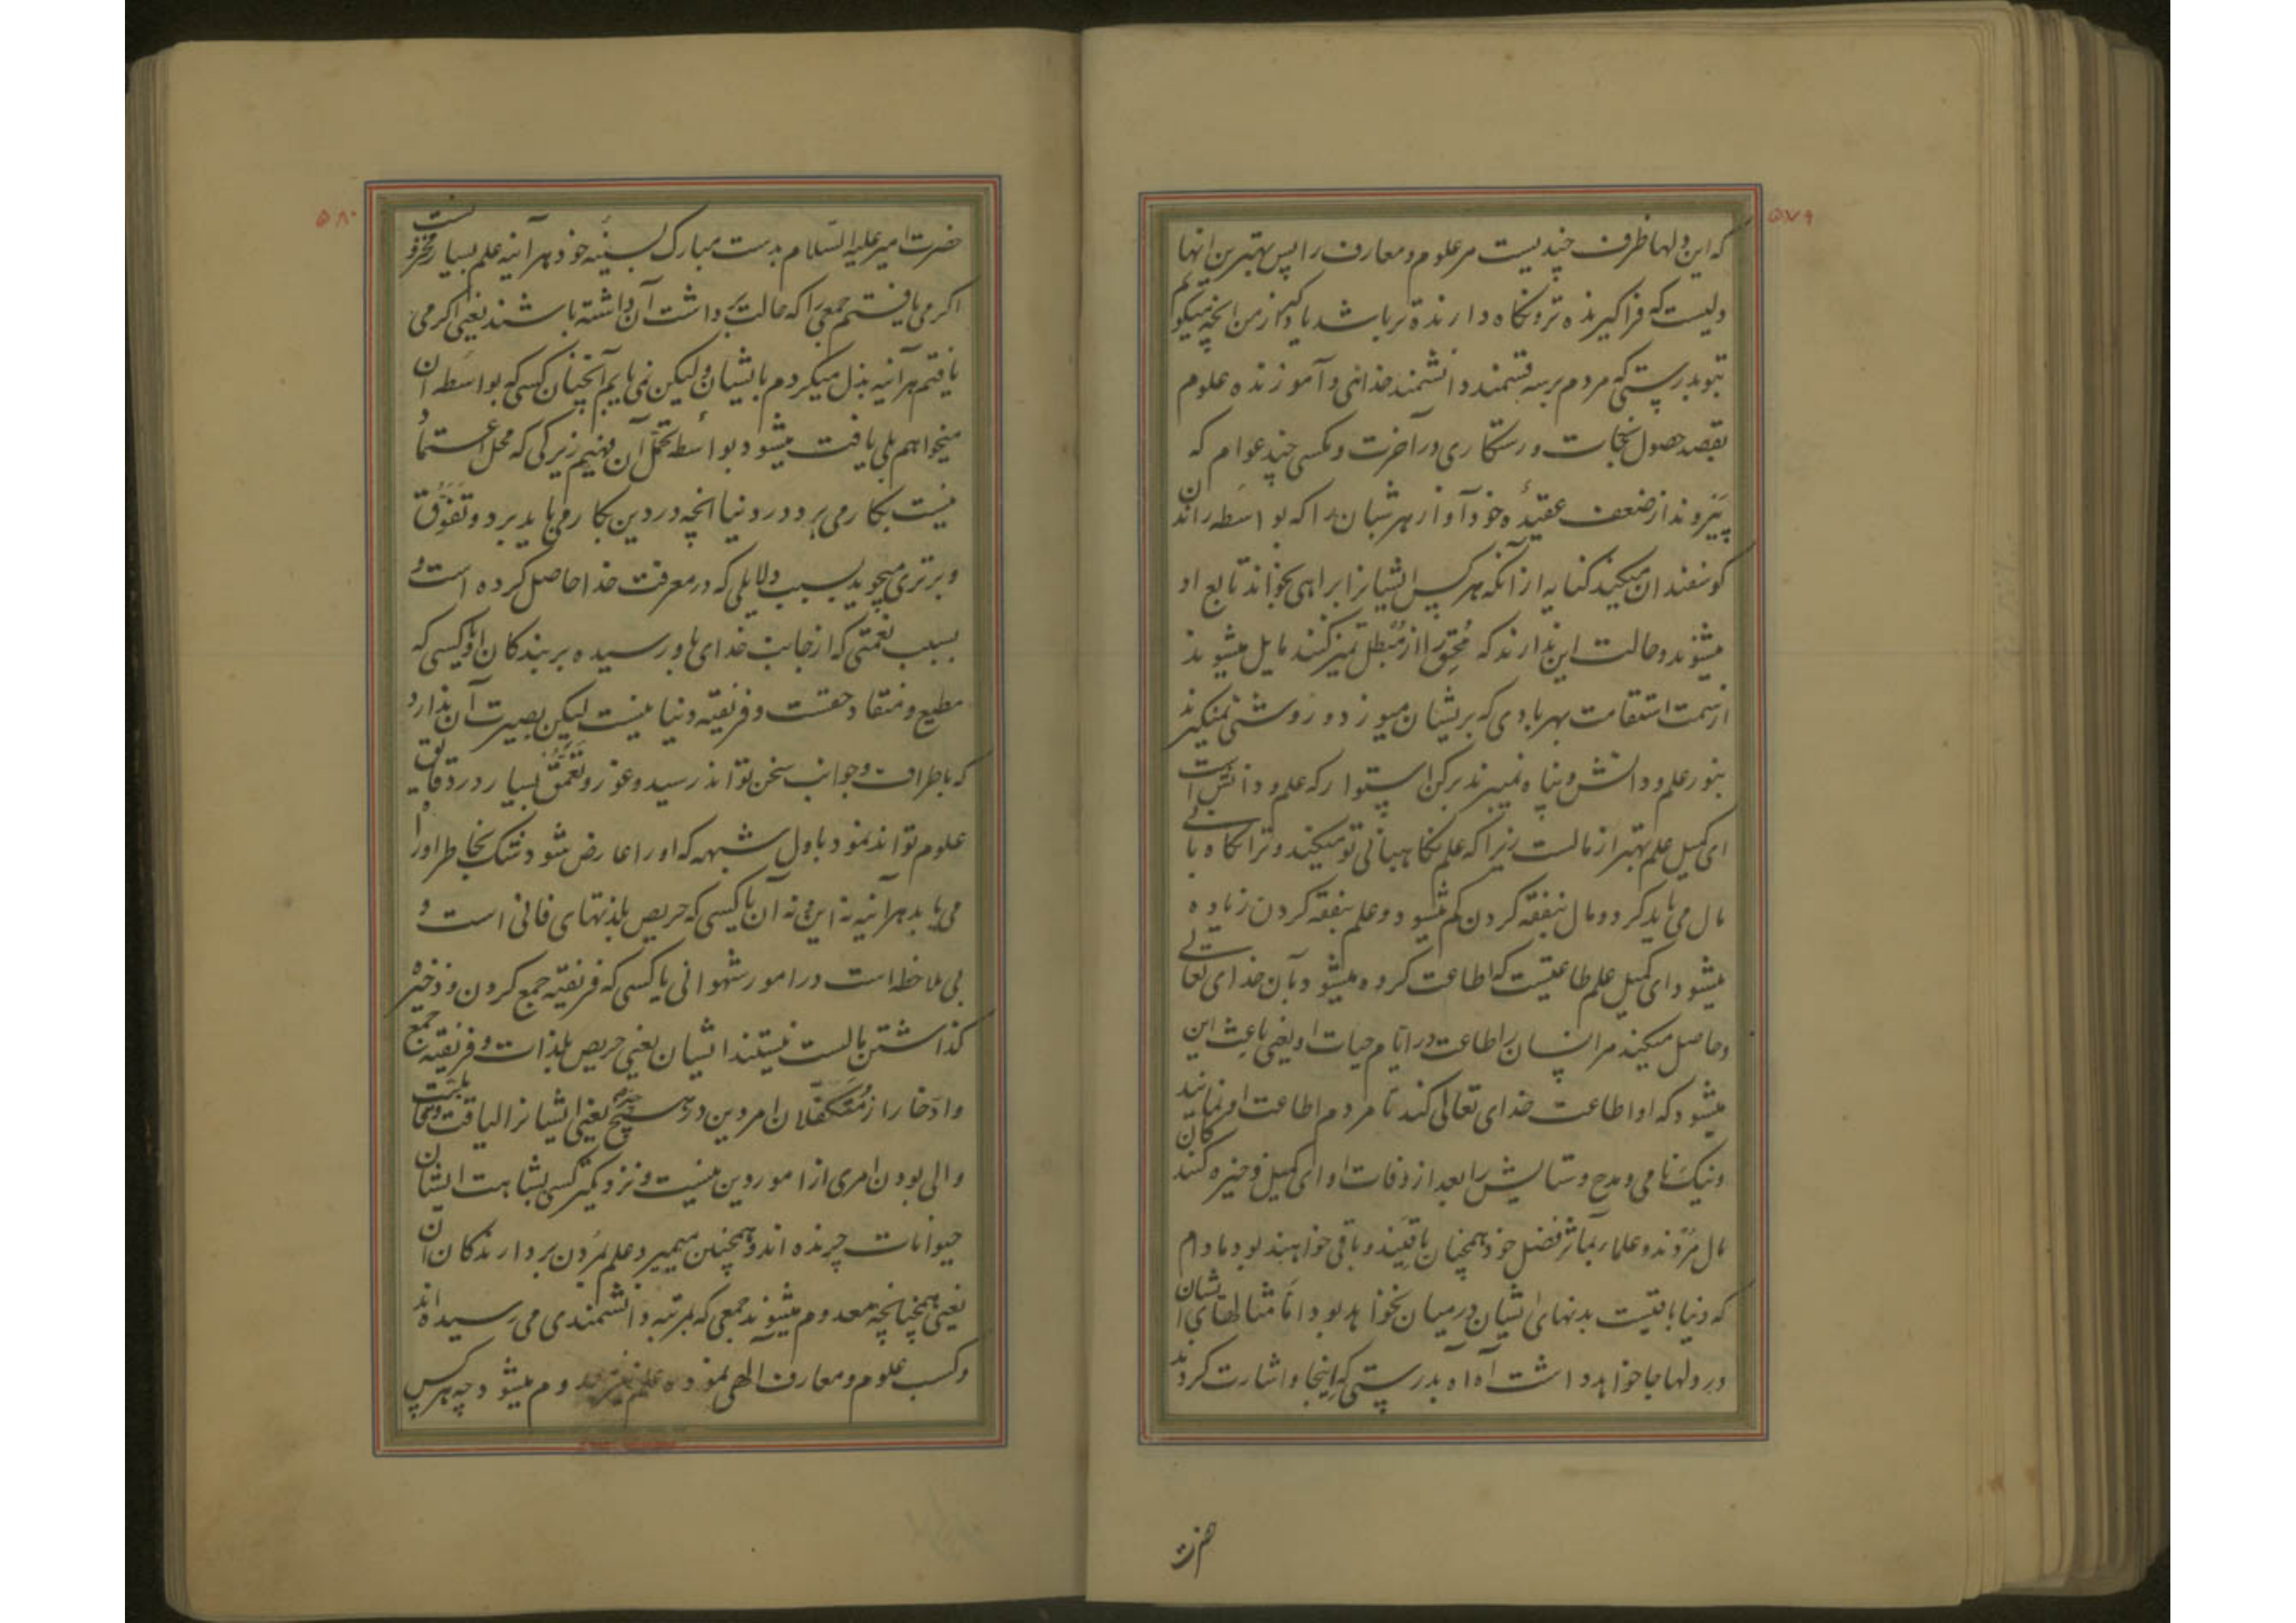 ۵۷۹
که این دلها ظرف چندیست مر علوم و معارف را پس بهترین انها
دلیست که فراگیرنده تر و نگاه دارنده تر باشد یاد گیر از من انچه میگویم
بتو بدرستی که مردم بر سه قسمند دانشمند خدائی و آموزنده علوم
بقصد حصول نجات و رستگاری در آخرت و مگسی چند عوام که
پیروند از ضعف عقیدهٔ خود آواز هر شبان را که بواسطه راندن
گوسفندان میکند کنایه از آنکه هر کس ایشانرا براهی بخواند تابع او
میشوند و حالت این ندارند که مُحِق را از مُبطل تمیز کنند مایل میشوند
از سمت استقامت بهر بادی که بریشان میوزد و روشنی نمیگیرند
بنور علم و دانش و پناه نمیبرند برکن استوار که علم و دانش است
ای کمیل علم بهتر از مالست زیرا که علم نگاهبانی تو میکند و ترا نگاهبانی
مال می باید کرد و مال بنفقه کردن کم میشود و علم بنفقه کردن زیاده
میشود ای کمیل علم طاعتیست که اطاعت کرده میشود بآن خدای تعالی
و حاصل میکند مر انسان را طاعت در ایام حیات او یعنی باعث این
میشود که او اطاعت خدای تعالی کند تا مردم اطاعت او نمایند
و نیک نامی و مدح و ستایش را بعد از وفات او ای کمیل ذخیره کنندکان
مال مُردند و علما بمآثر فضل خود همچنان باقیند و باقی خواهند بود مادام
که دنیا باقیست بدنهای ایشان در میان نخواهد بود امّا مثالهای ایشان
در دلها جا خواهد داشت اه اه بدرستی که اینجا و اشارت کردند
حضرت
۵۸۰
حضرت امیر علیه السّلام بدست مبارک بسینهٔ خود هر آینه علم بسیار مخزونست
اگر می یافتم جمعی را که حالت برداشت آن داشته باشند یعنی اگر می
یافتم هر آینه بذل میکردم بایشان و لیکن نمی یابم آنچنان کسی که بواسطه آن
میخواهم بلی یافت میشود بواسطه تحمّل آن فهیم زیرکی که محل اعتماد
نیست بکار می برد در دنیا انچه در دین بکار می باید برد و تَفَوُّق
و برتری میجوید بسبب دلایلی که در معرفت خدا حاصل کرده است و
بسبب نعمتی که از جانب خدای باو رسیده بر بندگان او یا کسی که
مطیع و منقاد حقست و فریفته دنیا نیست لیکن بصیرت آن ندارد
که باطراف و جوانب سخن تواند رسید و غور و تَعَمُّق بسیار در دقایق
علوم تواند نمود باول شبهه که او را عارض شود شک بخاطر او راه
می یابد هر آینه نه این و نه آن یا کسی که حریص بلذتهای فانی است و
بی ملاحظه است در امور شهوانی یا کسی که فریفته جمع کردن و ذخیره
گذاشتن مالست نیستند ایشان یعنی حریص بلذات و فریفته جمع
و ادّخار از مُتَکَفِّلان امر دین در هیچ چیز یعنی ایشانرا لیاقت و قابلیت
والی بودن امری از امور دین نیست و نزدیکتر کسی بشباهت ایشان
حیوانات چرنده اند و همچنین میمیرد علم بمُردن بردارندکان آن
یعنی همچنانچه معدوم میشوند جمعی که بمرتبه دانشمندی می رسیده اند
و کسب علوم و معارف الهی نموده علم نیز معدوم میشود چه هر کس